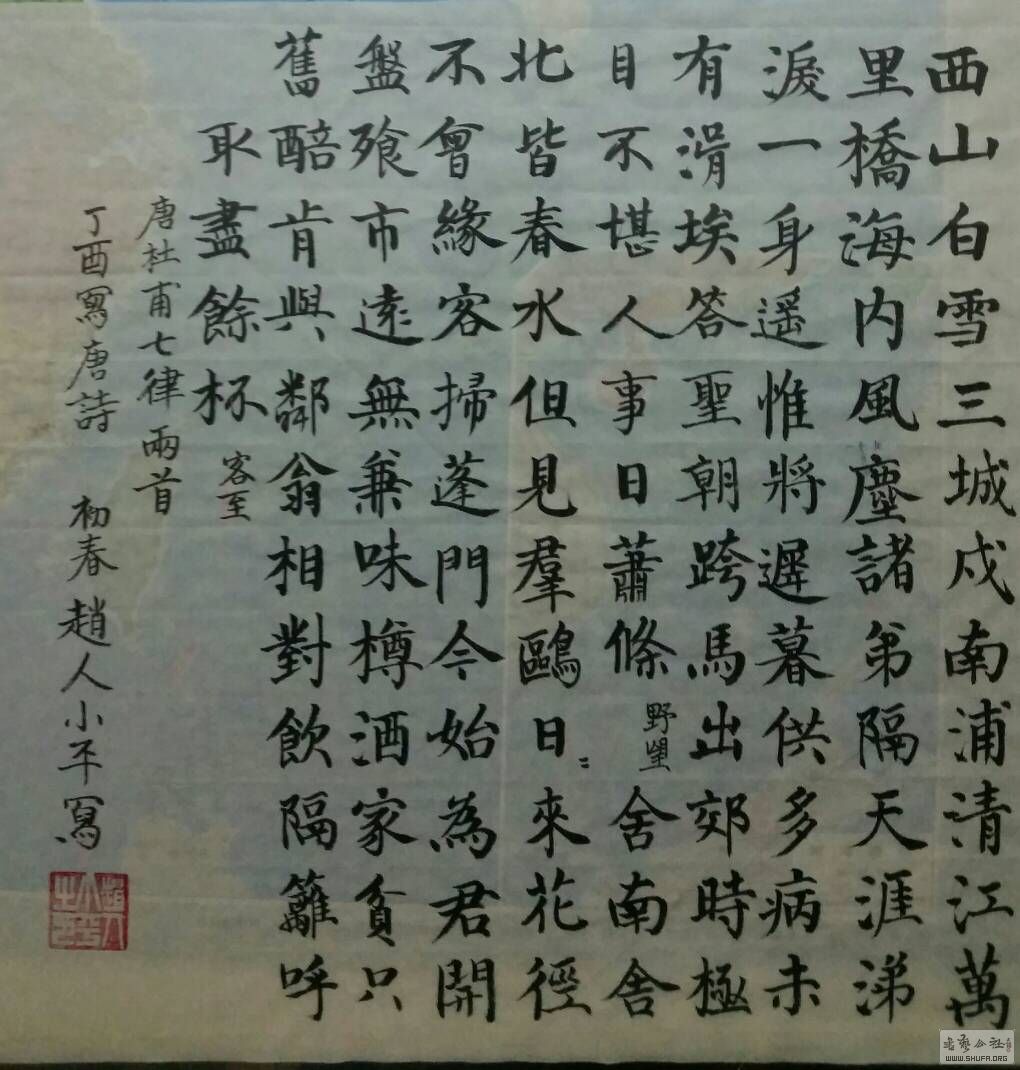 西山白雪三城戍南浦清江萬
里橋海內風塵諸弟隔天涯涕
淚一身遥惟將遲暮供多病未
有涓埃答聖朝跨馬出郊時極
目不堪人事日蕭條 野望 舍南舍
北皆春水但見羣鷗日〻來花徑
不會緣客掃蓬門今始為君開
盤飱市遠無兼味樽酒家貧只
舊醅肯與鄰翁相對飲隔籬呼
取盡餘杯 客至
唐杜甫七律兩首
丁酉寫唐詩 初春 趙人小平寫
WWW.SHUFA.ORG